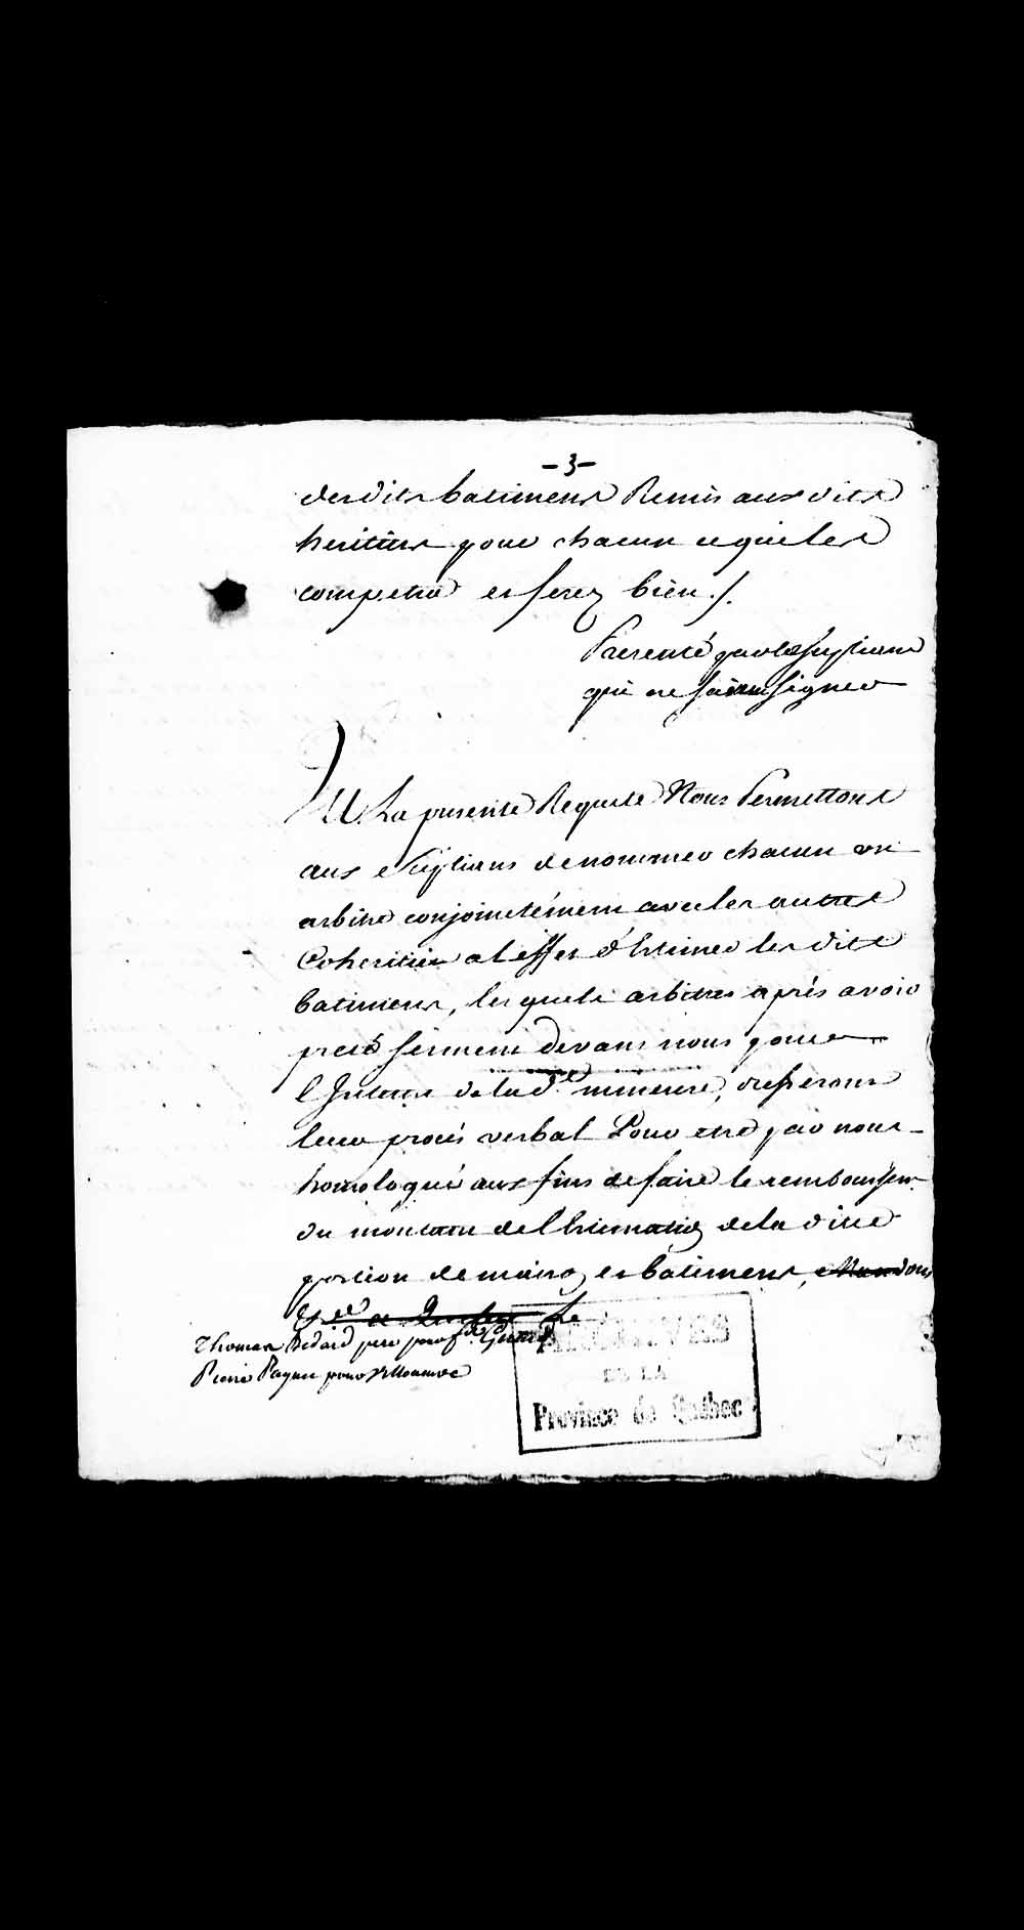 -3-
des dits batimens Remis aux dits
heritiers pour chacun ce qui les
compette et ferez bien ./.
Presenté par les supliants
qui ne savent signer
VU La presente Requete Nous Permettons
aux Suplians de nommer chacun un
arbitre conjointément avec les autres
Coheritiers a l'effet d'Estimer les dits
batimens, les quels arbitres après avoir
preté serment devant nous pour
l'Interest de la d.e mineure, dresseront
leur procés verbal Pour etre par nous
homologué aux fins de faire le remboursem.t
du montant de l'Estimation de la dite
portion de maison et batimens, Mandons
&.ce a Quebec le
Thomas Bedard pere pour
Pierre Paquet pour
ARCHIVES
DE LA
Province de Québec